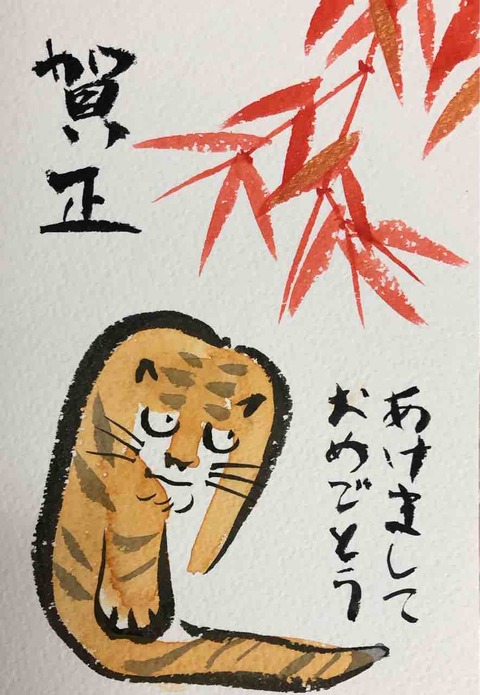 賀正
あけまして
おめでとう